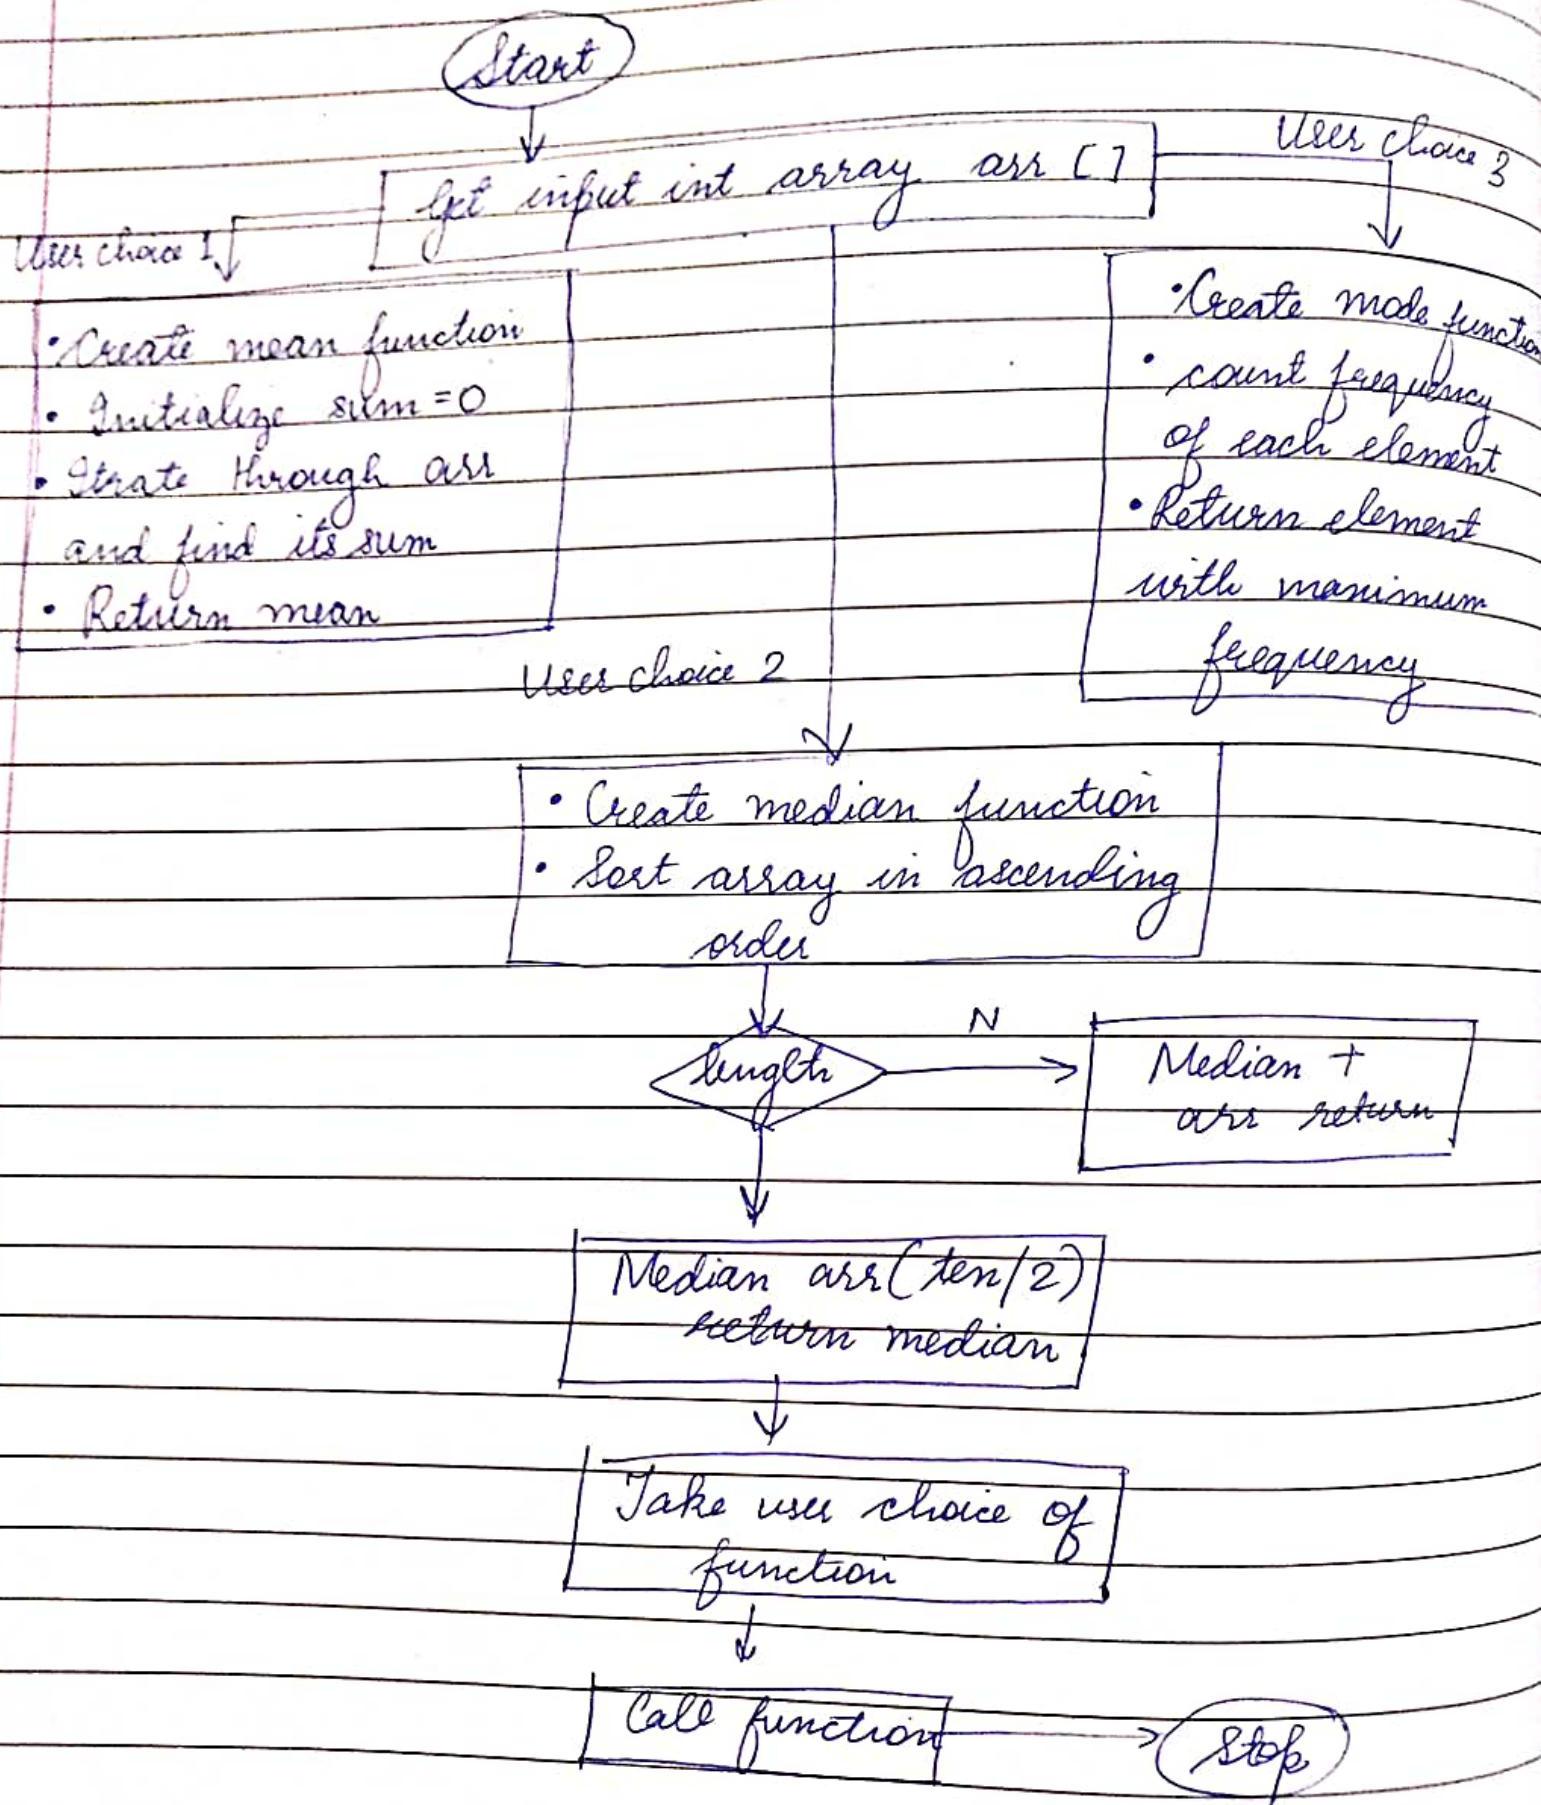 Start
Get input int array arr [ ]
User choice 3
User choice 1
• Create mean function
• Initialize sum = 0
• Itrate through arr
and find its sum
• Return mean
• Create mode function
• count frequency
of each element
• Return element
with manimum
frequency
User choice 2
• Create median function
• Sort array in ascending
order
length
N
Median +
arr return
Median arr(ten/2)
return median
Take user choice of
function
Call function
Stop